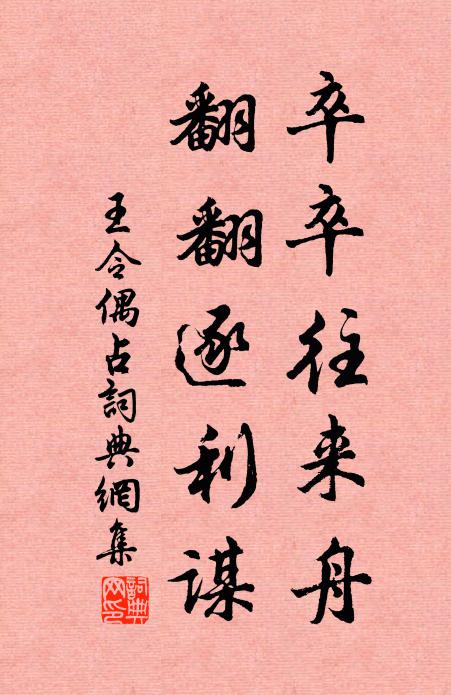 卒卒往来舟
翻翻逐利謀
王令偶占詞典網集
詞典網印